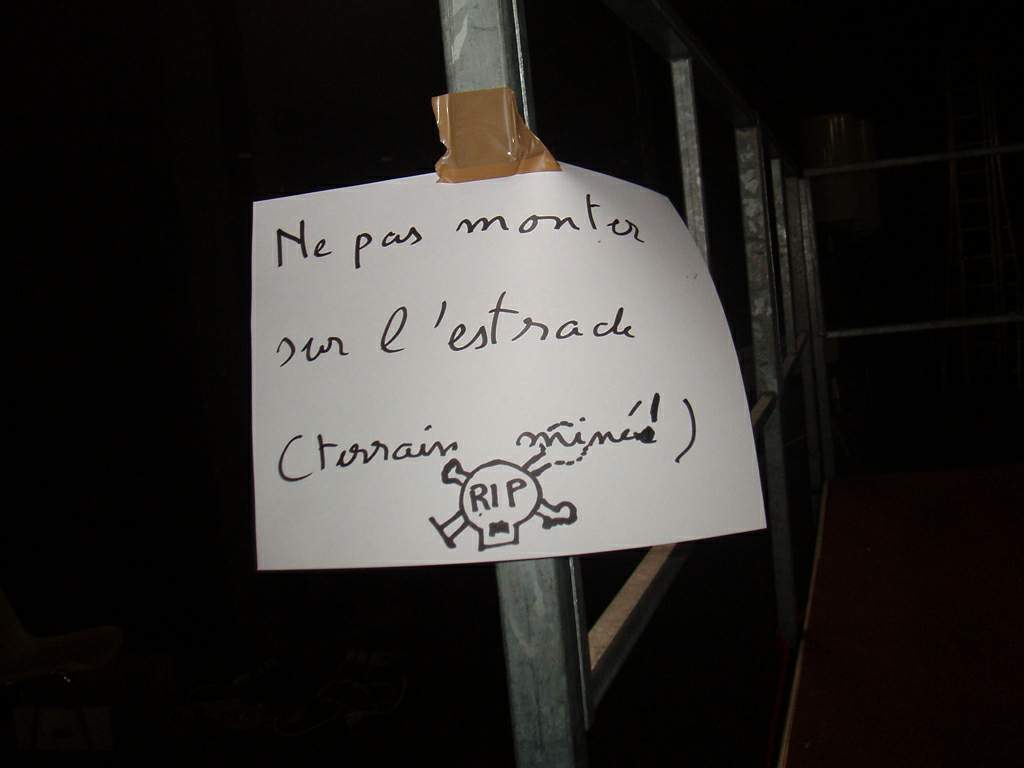 Ne pas monter
sur l'estrade
(terrain miné!)
RIP